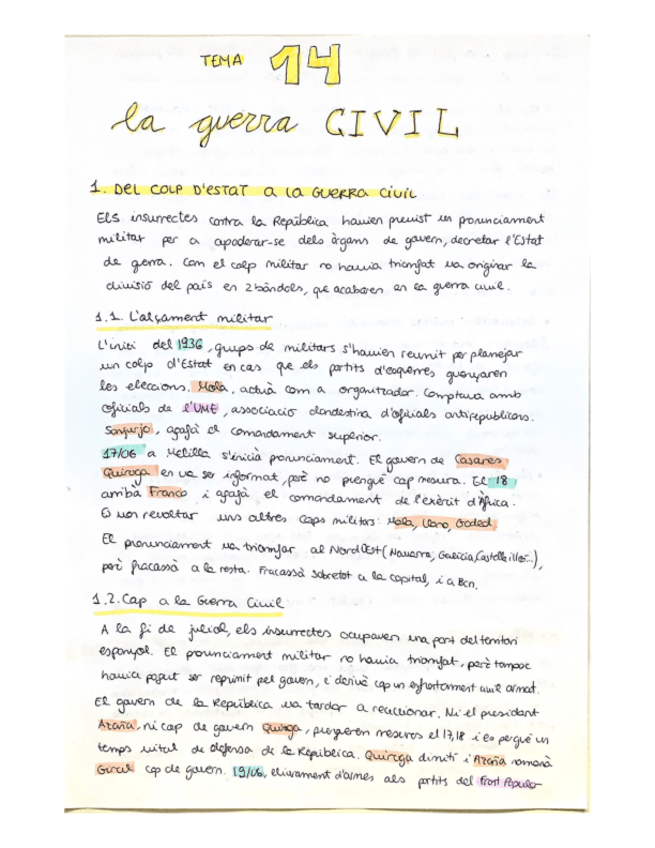 TEMA 14
la guerra CIVIL
1. DEL COLP D'ESTAT A LA GUERRA CIVIL
Els insurrectes contra la República havien previst un pronunciament
militar per a apoderar-se dels òrgans de govern, decretar l'Estat
de gerra. Com el colp militar no havia triomfat va originar la
divisió del país en 2 bàndols, que acabaren en la guerra civil.
1.1. L'alçament militar
L'inici del 1936, grups de militars s'havien reunit per planejar
un colp d'Estat en cas que els partits d'esquerres guanyaren
les eleccions. Mola, actuà com a organitzador. Comptava amb
oficials de l'UME, associació clandestina d'oficials antirepublicans.
Sanjurjo, agafà el comandament superior.
17/06 a Melilla s'inicià pronunciament. El govern de Casares
Quiroga en va ser informat, però no prengué cap mesura. El 18
arribà Franco i agafà el comandament de l'exèrcit d'Àfrica.
Es van revoltar uns altres caps militars: Mola, Llano, Goded.
El pronunciament va triomfar al NordOest (Navarra, Galicia, Castella i lleó...),
però fracassà a la resta. Fracassà sobretot a la capital, i a Bcn.
1.2. Cap a la Guerra Civil
A la fi de juliol, els insurrectes ocupaven una part del territori
espanyol. El pronunciament militar no havia triomfat, però tampoc
havia pogut ser reprimit pel govern, i derivà cap un enfrontament civil armat.
El govern de la República va tardar a reaccionar. Ni el president
Azaña, ni cap de govern Quiroga, prengueren mesures el 17,18 i es pergué un
temps vital de defensa de la República. Quiroga dimití i Azaña nomenà
Giral cap de govern. 19/06, lliurament d'armes als partits del Front Popular